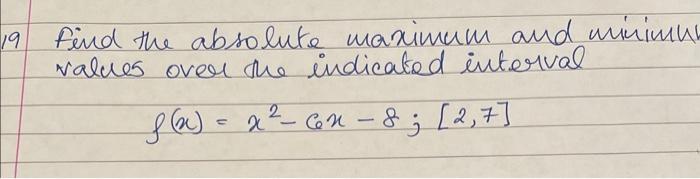 19 Find the absolute maximum and minimu
values over the indicated interval
f(x) = x² - 6x - 8 ; [2,7]